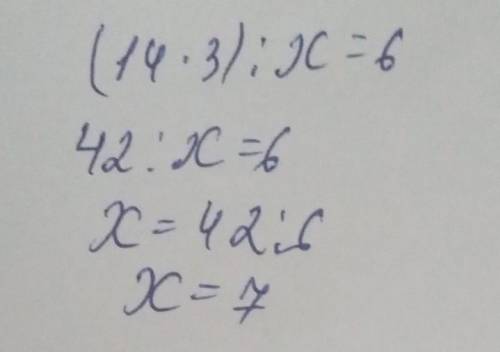 (14 · 3) : x = 6
42 : x = 6
x = 42 : 6
x = 7